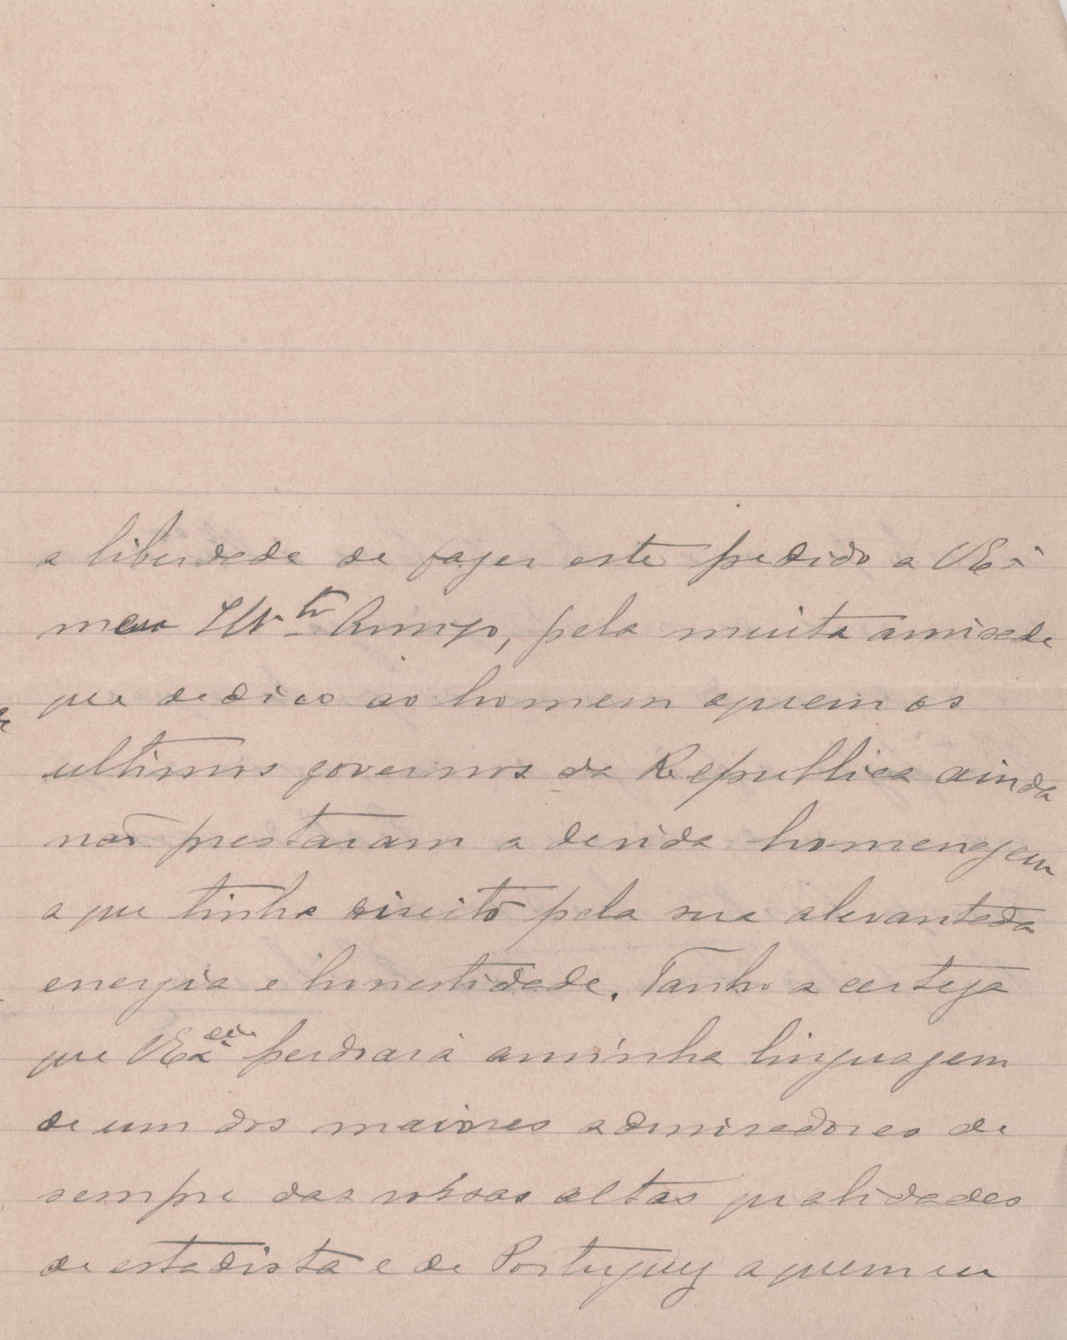 a liberdade de fazer este pedido a VEx.ª
meu Ill.tr Amigo, pela muita amisade
que dedico ao homem aquem os
ultimos governos da Republica ainda
não prestaram a devida homenagem
a que tinha direito pela sua alevantada
energia e honestidade. Tenho a certeza
que VEx.cia perdoará aminha linguagem
de um dos maiores admiradores de
sempre das vossas altas qualidades
de estadista e de Portuguez aquem eu